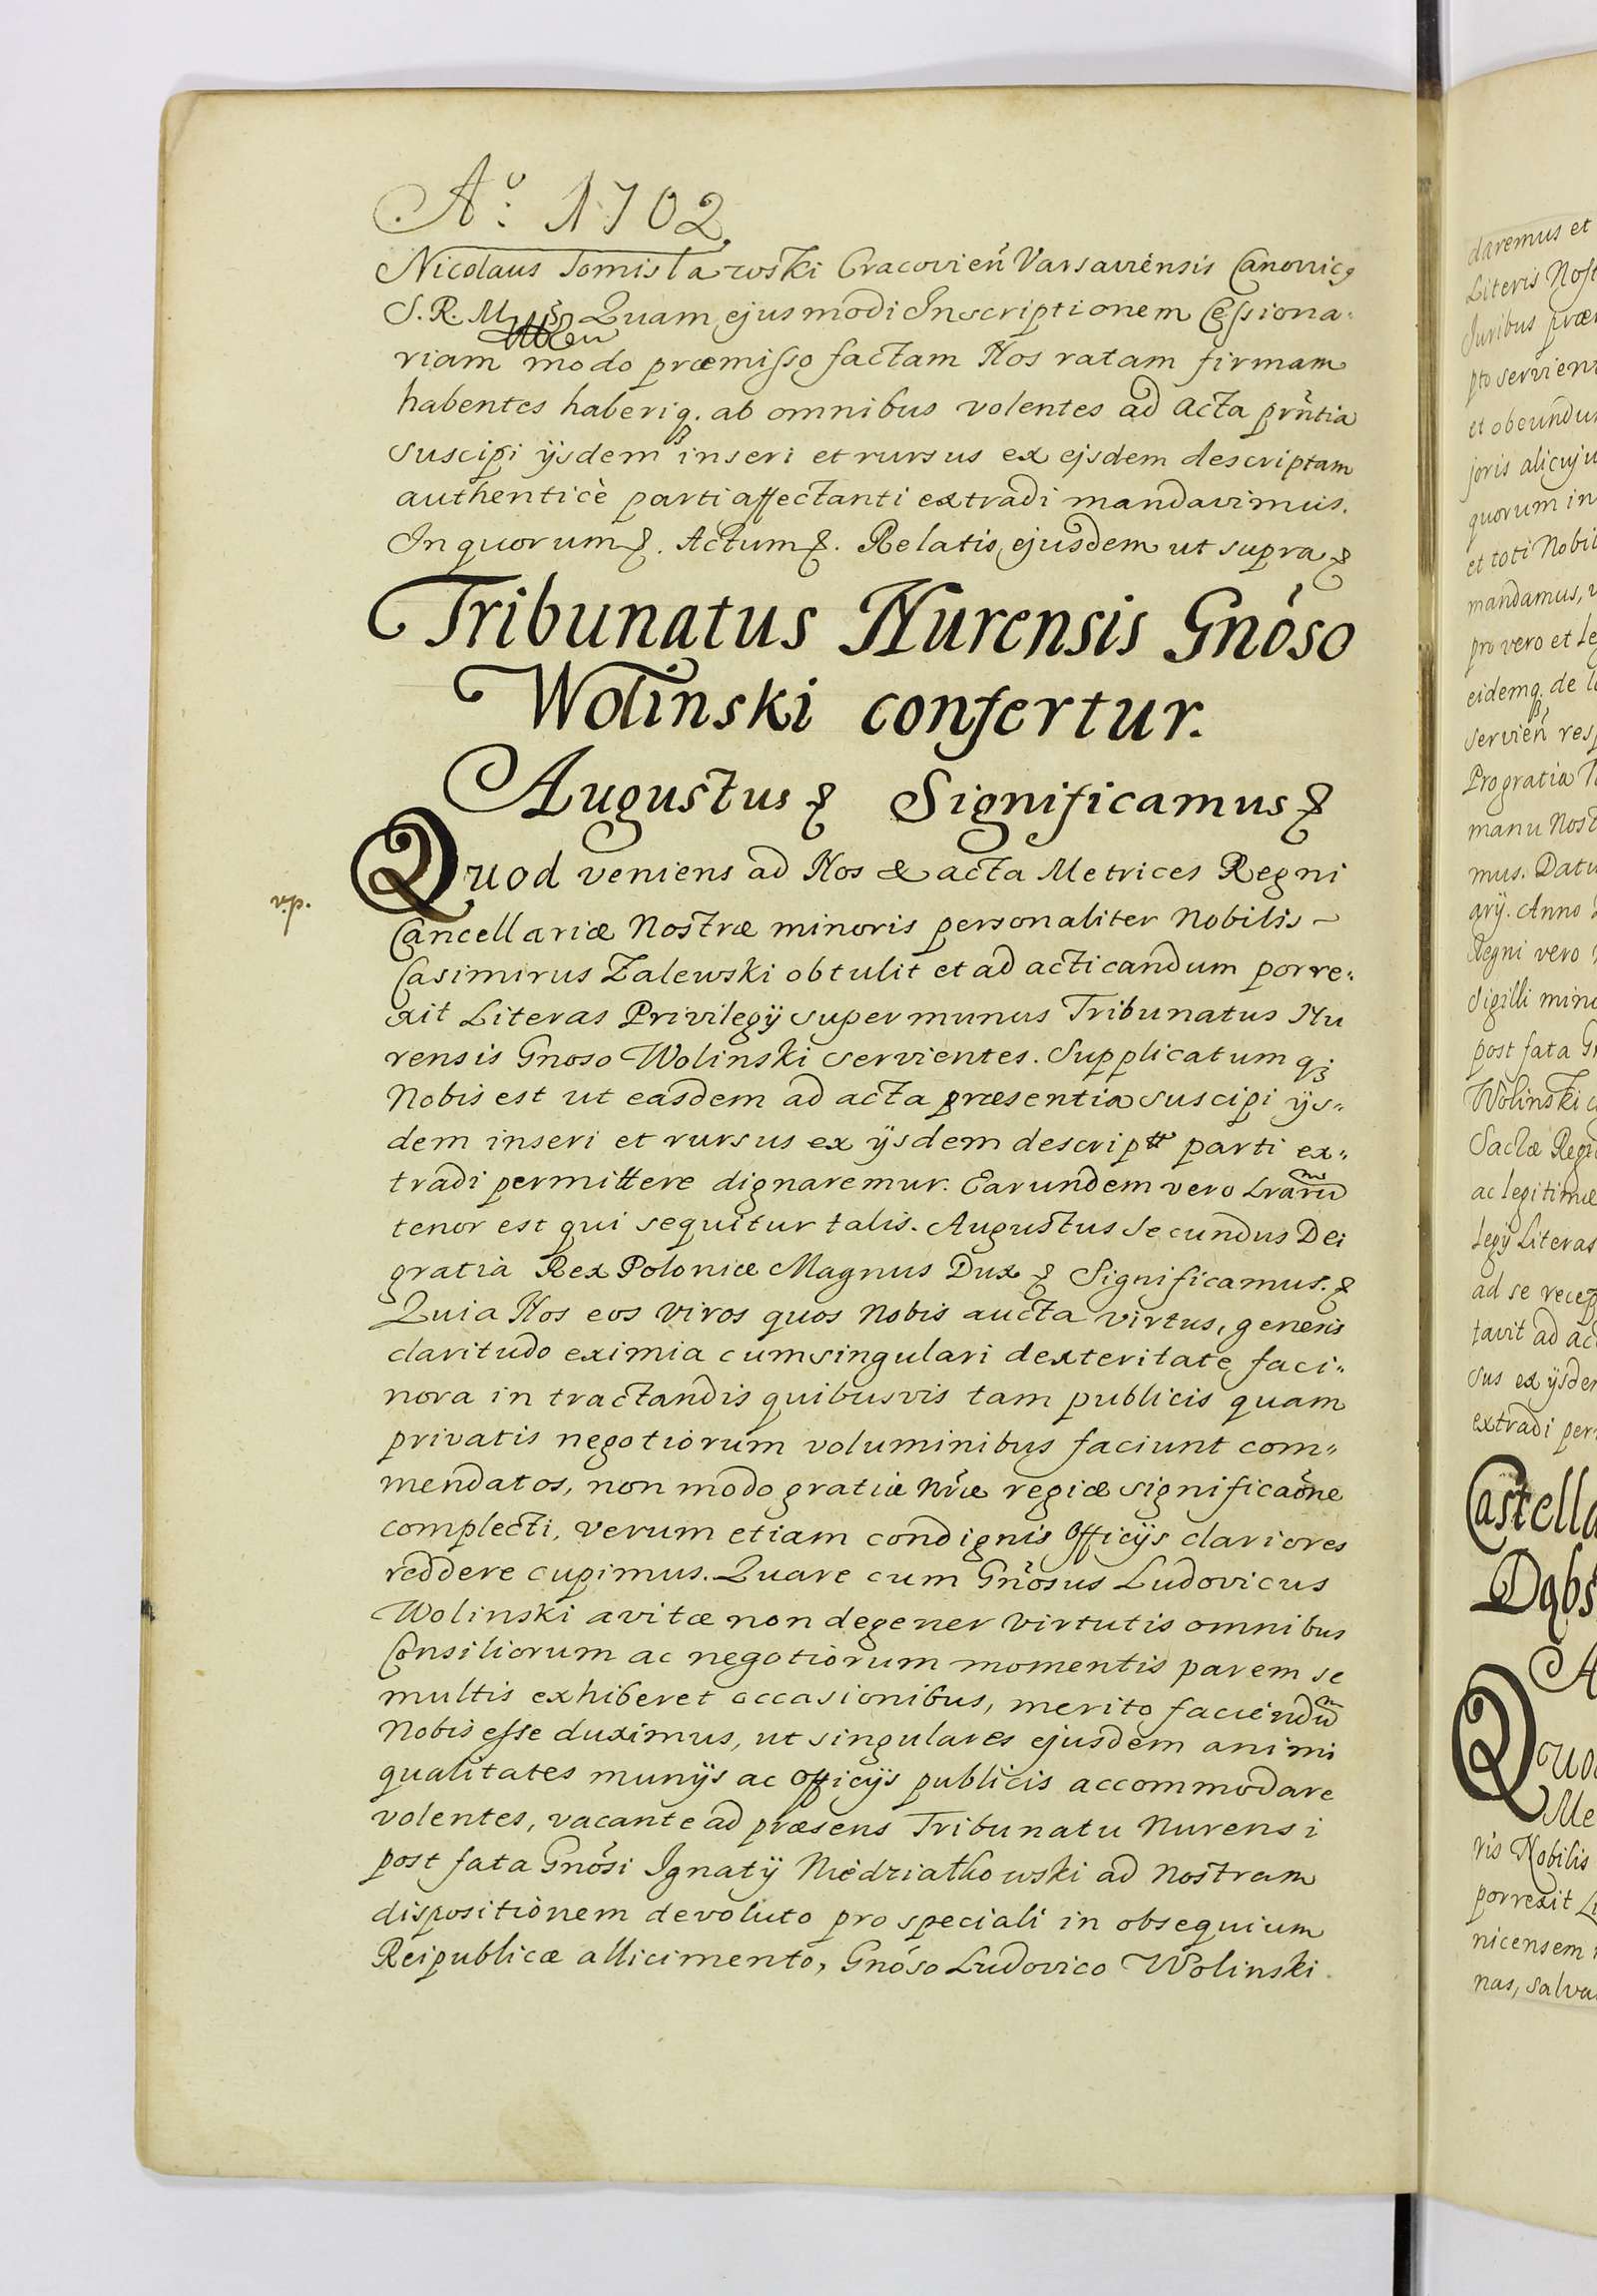 Aº: 1702
Nicolaus Tomisławski Cracovień Varsaviensis Canonicꝯ
S. R. M. Quam ejusmodi Inscriptionem Cessiona:
riam modo præmisso factam Nos ratam firmam
habentes haberiq. ab omnibus volentes ad Acta prńtia
suscipi ijsdem inseri et rursus ex ejsdem descriptam
authenticè parti affectanti extradi mandavimus.
In quorum &. Actum &. Relatis ejusdem ut supra &
Tribunatus Nurensis Gnóso
Wolinski confertur.
Augustus & Significamus &
Quod veniens ad Nos & acta Metrices Regni
Cancellariæ Nostræ minoris personaliter Nobilis ~
Casimirus Zalewski obtulit et ad acticandum porre:
xit Literas Privilegij super munus Tribunatus Nu
rensis Gnoso Wolinski servientes. Supplicatum qꝫ
Nobis est ut easdem ad acta præsentia suscipi ijs„
dem inseri et rursus ex ijsdem descriptt parti ex„
tradi permittere dignaremur. Earundem vero Lrarum
tenor est qui sequitur talis. Augustus Secundus Dei
gratia Rex Poloniæ Magnus Dux & Significamus. &
Quia Nos eos viros quos Nobis aucta virtus, generis
claritudo eximia cum singulari dexteritate faci„
nora in tractandis quibusvis tam publicis quam
privatis negotiorum voluminibus faciunt com„
mendatos, non modo gratiæ Nræ regiæ significaóne
complecti, verum etiam condignis Officijs clariores
reddere cupimus. Quare cum Gnósus Ludovicus
Wolinski avitæ non degener virtutis omnibus
Consiliorum ac negotiorum momentis parem se
multis exhiberet occasionibus, merito faciendum
Nobis esse duximus, ut singulares ejusdem animi
qualitates munijs ac Officijs publicis accommodare
volentes, vacante ad præsens Tribunatu Nurensi
post fata Gnósi Ignatij Niedziałkowski ad Nostram
dispositionem devoluto pro speciali in obsequium
Reipublicæ allicimento, Gnóso Ludovico Wolinski
daremus et
Literis Nost
Juribus præ
pto servien
et obeundu
joris alicuju
quorum in
et toti Nobil
mandamus, v
pro vero et le
eidemq. de l
servień resp
Pro gratia
manu Nost
mus. Datu
arij. Anno
Regni vero
Sigilli mino
post fata G
Wolinski
Sacræ Regi
ac legitime
legij Literas
ad se recep
tavit ad ac
sus ex ijsde
extradi per
Castella
Dąbs
A
Quo
Me
ris Nobilis
porrexit Li
nicensem
nas, salva